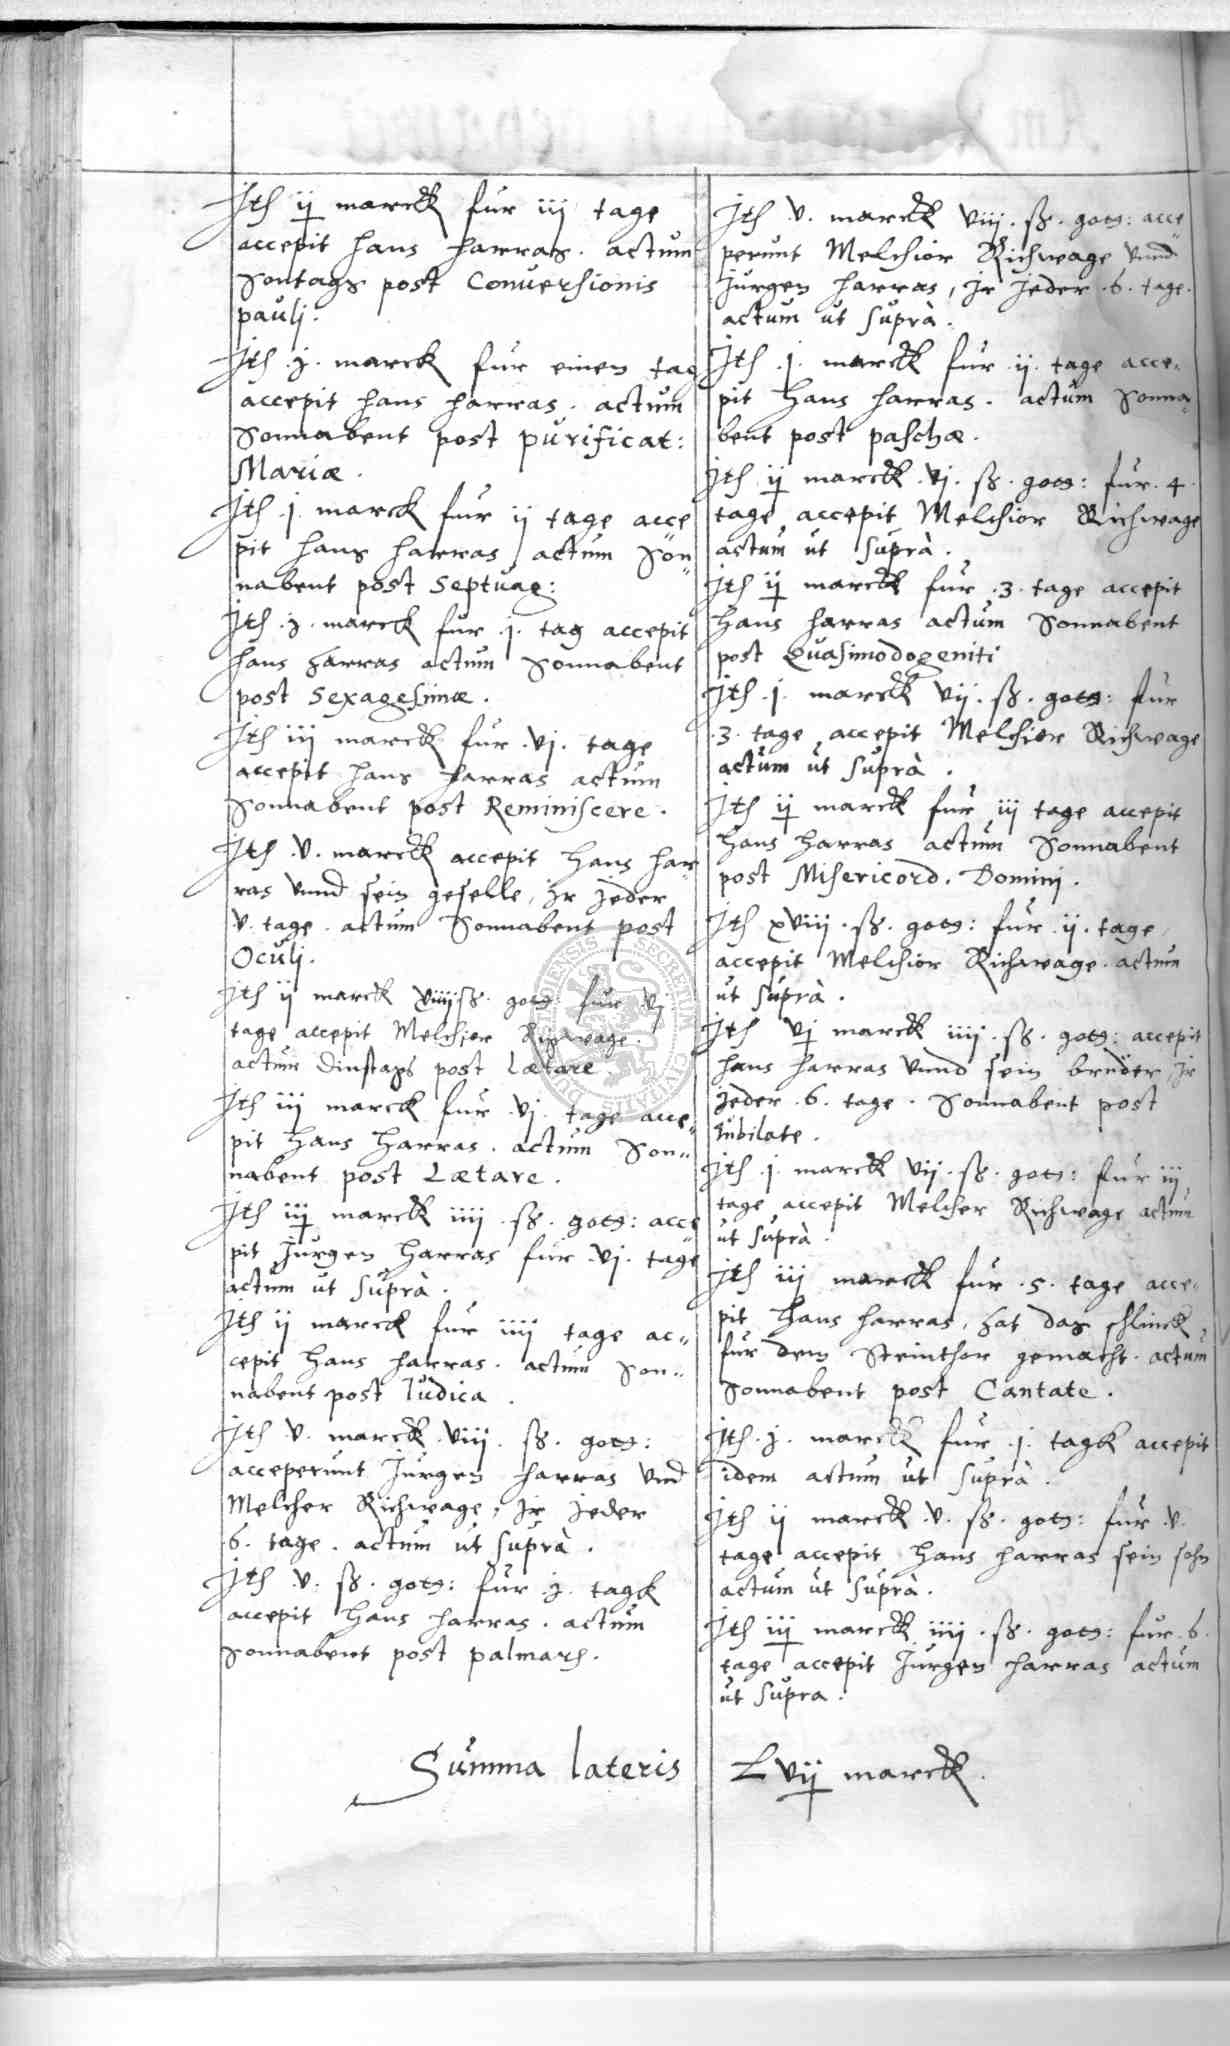 Jtem ij marckk fur iij tage
accepit hans harras. actum
Sontags post Conversionis
pauli.
Jtem .j. marck fur einen tag
accepit hans harras. actum
Sonnabent post purificat:
Mariæ.
Jtem .j. marck fur ij tage acce
pit hans harras actum Son=
nabent post Septuag:
Jtem .j. marck fur .j. tag accepit
hans harras actum Sonnabent
post Sexagesimæ.
Jtem iij marckk fur .vj. tage
accepit hans harras actum
Sonnabent post Reminiscere.
Jtem .v. marckk accepit hans har=
ras vnnd sein geselle, jr jeder
v. tage. actum Sonnabent post
Oculj.
Jtem ij marckk viiij ß. gors: fur vj
tage accepit Melchior Richwage.
actum Dinstags post Lætare.
Jtem iij marckk fur .vj. tage acce=
pit hans harras. actum Son=
nabent post Lætare.
Jtem iij marckk iiij. ß. gors: acce
pit Jurgen harras fur .vj. tage
actum ut suprà.
Jtem ij marck fur iiij tage ac=
cepit hans harras. actum Son=
nabent post Judica.
Jtem v. marckk .viij. ß. gors:
acceperunt Jurgen harras vnd
Melcher Richwage, jr jeder
6. tage. actum ut suprà.
Jtem .v. ß. gors: fur .j. tagk
accepit hans harras. actum
Sonnabent post palmarum.
Jtem v. marckk viij. ß. gors: acce=
perunt Melchior Richwage vnnd
Jurgen harras, jr jeder .6. tage.
actum ut suprà.
Jtem .j. marckk fur .ij. tage acce=
pit hans harras. actum Sonna=
bent post paschæ.
Jtem ij marckk .vj. ß. gors: fur .4.
tage accepit Melchior Richwage
actum ut suprà.
Jtem ij marckk fur .3. tage accepit
hans harras actum Sonnabent
post Quasimodogeniti
Jtem .j. marckk vij. ß. gors: fur
.3. tage accepit Melchior Richwage
actum ut suprà.
Jtem ij marckk fur iij tage accepit
hans harras actum Sonnabent
post Misericord. Domini.
Jtem xviij. ß. gors: fur .ij. tage
accepit Melchior Richwage. actum
ut suprà.
Jtem vj marckk iiij. ß. gors: accepit
hans harras vnnd sein bruder jr
jeder .6. tage. Sonnabent post
Jubilate.
Jtem .j. marckk vij. ß. gors: fur iij
tage accepit Melcher Richwage actum
ut suprà.
Jtem iij marckk fur .5. tage acce=
pit hans harras, hat das schlinck
fur dem Steinthor gemacht. actum
Sonnabent post Cantate.
Jtem .j. marckk fur .j. tagk accepit
idem actum ut suprà.
Jtem ij marckk .v. ß. gors: fur .v.
tage accepit hans harras sein sohn
actum ut suprà.
Jtem iij marckk iiij. ß. gors: fur .6.
tage accepit Jurgen harras actum
ut supra.
Summa lateris Lvij marckk.
SECRETUM CIVITATIS